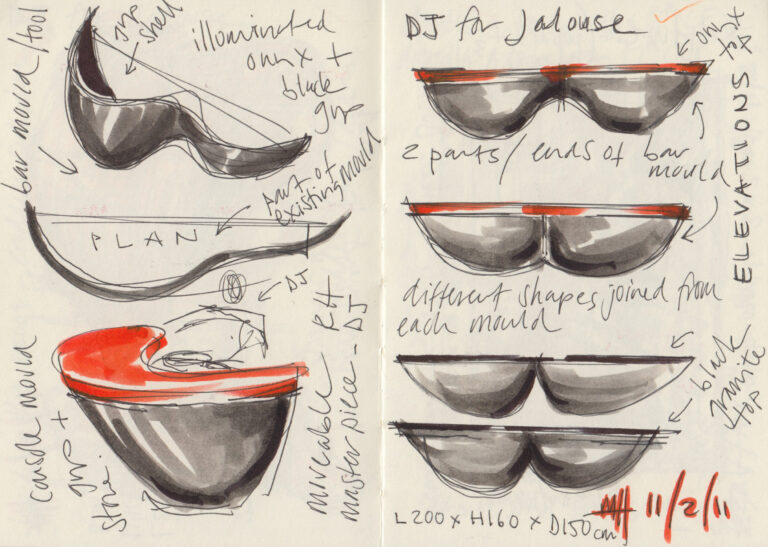 bar mould/tool
grp
shell
illuminated
onyx +
black
grp
part of
existing mould
PLAN
DJ
console mould
grp +
stone.
moveable RH
masterpiece - DJ
DJ for Jalouse
onyx
top
ELEVATIONS
2 parts/ends of bar
mould
different shapes joined from
each mould
black
granite
top
L200 x H160 x D150cm
MH 11/2/11